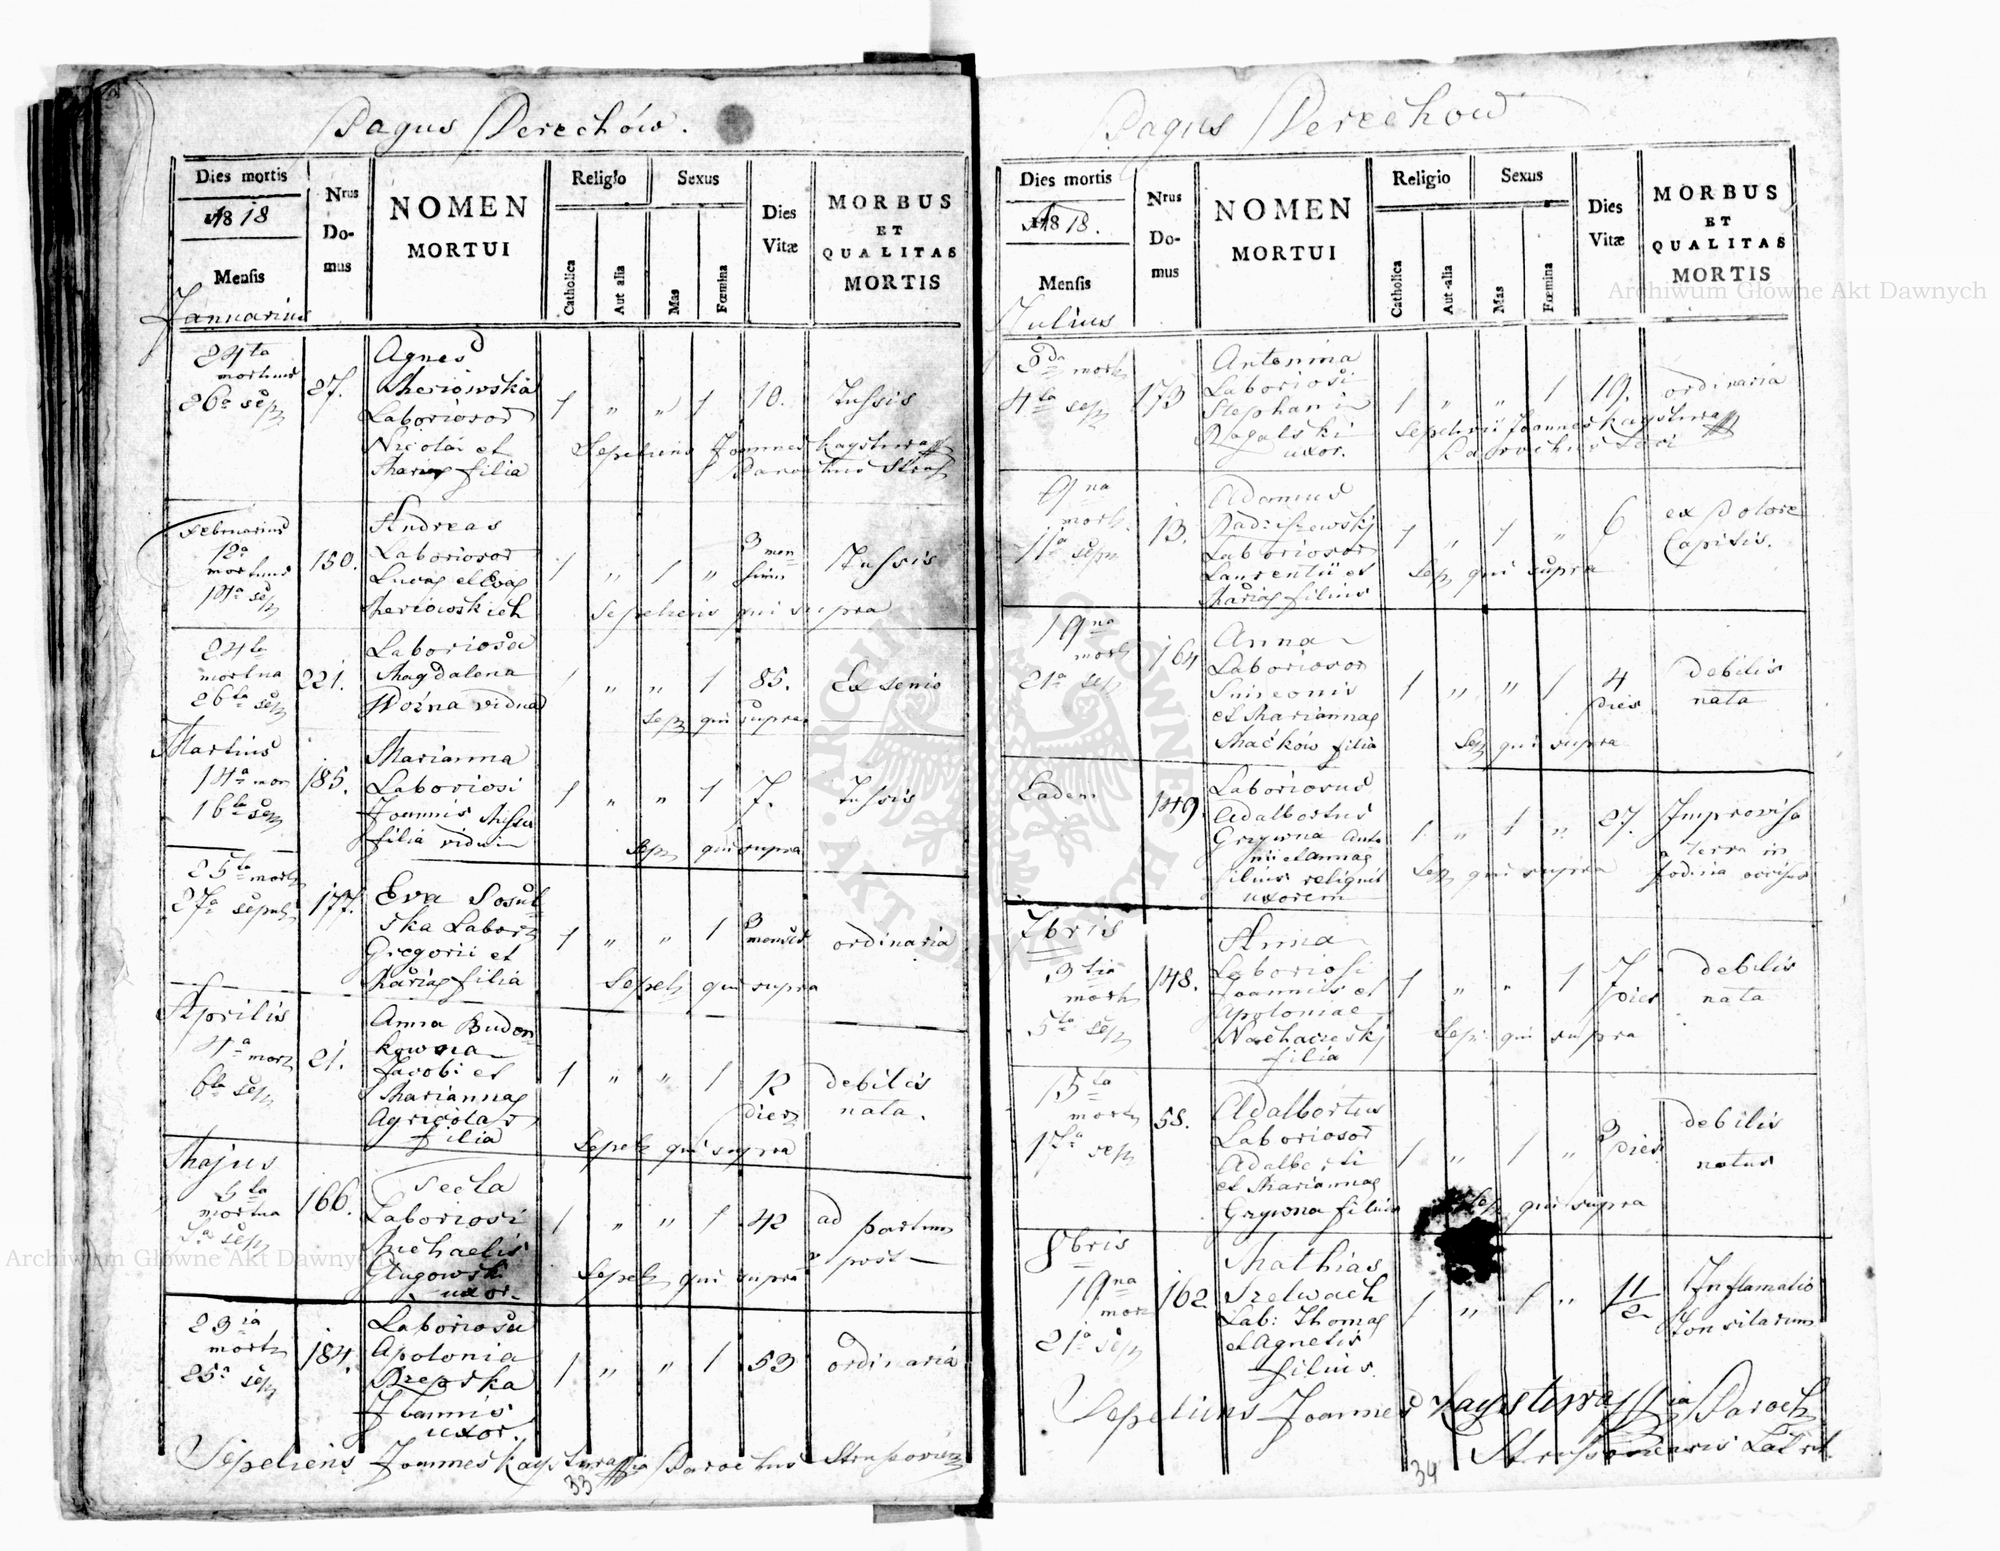 Pagus Derechów.
Dies mortis
1818
Mensis
Januarius
Nrus
Do-
mus
NOMEN
MORTUI
Religio
Catholica
Aut alia
Sexus
Mas
Fœmina
Dies
Vitæ
MORBUS
ET
QUALITAS
MORTIS
24ta
mortuus
26a sep
27.
Agnes
Laborioso
Nicolai et
filia
1 " " 1
10.
Tussis
Sepeliens Joannes
Parochus
Februarius
12a
mortuus
14a sep
150.
Andreas
Laborioso
Lucas et Eva
1 " 1 "
3 men
sium
Tussis
Sepeliens qui supra
24ta
mortua
26ta sep
221.
Laboriosa
Magdalena
Woźna vidua
1 " " 1
85.
Ex senio
Sep qui supra
Martius
14a mor
16ta sep
185.
Marianna
Laboriosi
Joannis
filia
1 " " 1
7.
Tussis
Sep qui supra
25ta mort
27a sepul
177.
Eva Sosul-
ska Labor
Gregorii et
Mariae filia
1 " " 1
3
menses
ordinaria
Sepel qui supra
Aprilis
4a mort
6ta sep
21.
Anna Budon
kowna
Jacobi et
Mariannae
Agricolar
filia
1 " " 1
12
dier
debilis
nata.
Sepel qui supra
Majus
5ta
mortua
sep
166.
Tecla
Laboriosi
Michaelis
Gługowski
uxor.
1 " " 1
42
ad partum
post
Sepel qui supra
23ia
mort
25a sep
184.
Laboriosa
Apolonia
Rzepska
Joannis
uxor.
1 " " 1
53
ordinaria
Sepeliens Joannes Parochus
33
Pagus Derechow
Dies mortis
1818.
Mensis
Julius
Nrus
Do-
mus
NOMEN
MORTUI
Religio
Catholica
Aut alia
Sexus
Mas
Fœmina
Dies
Vitæ
MORBUS
ET
QUALITAS
MORTIS
mort
4ta sep
173
Antonina
Laboriosi
Stephani
Rogalski
uxor.
1 " " 1
19.
ordinaria
Joannes
Parochus Loci
9na
mort.
11a sep
13.
Adamus
Radziszewski
Laborioso
Laurentii et
Mariae filius
1 " 1 "
6
ex Dolore
Capitis.
Sep qui supra
19na
mort
21a sep
164
Anna
Laborioso
Simeonis
et Mariannae
Maćków filia
1 " " 1
4
dies
debilis
nata
Sep qui supra
Eadem
149
Laboriosus
Adalbertus
Grzywna Anto
nii et Annae
filius reliquit
uxorem
1 " 1 "
27.
Improvisa
a terra in
fodina occisus
Sep qui supra
7bris
3tia
mort
5ta sep
148.
Anna
Laboriosi
Joannis et
Apoloniae
filia
1 " " 1
7
dies
debilis
nata
Sep. qui supra
15ta
mort
17a sep
58.
Adalbertus
Laborioso
Adalberti
et Mariannae
Grzywna filius
1 " 1 "
3
dies
debilis
natus
Sep qui supra
8bris
19na
mor
21a sep
162
Mathias
Szelwach
Lab: Thomae
et Agnetis
filius.
1 " 1 "
Inflamatio
Tonsilarum
Sepeliens Joannes Paroch
34
Archiwum Główne Akt Dawnych
Archiwum Główne Akt Dawnych
ARCHIWUM GŁÓWNE AKT DAWNYCH